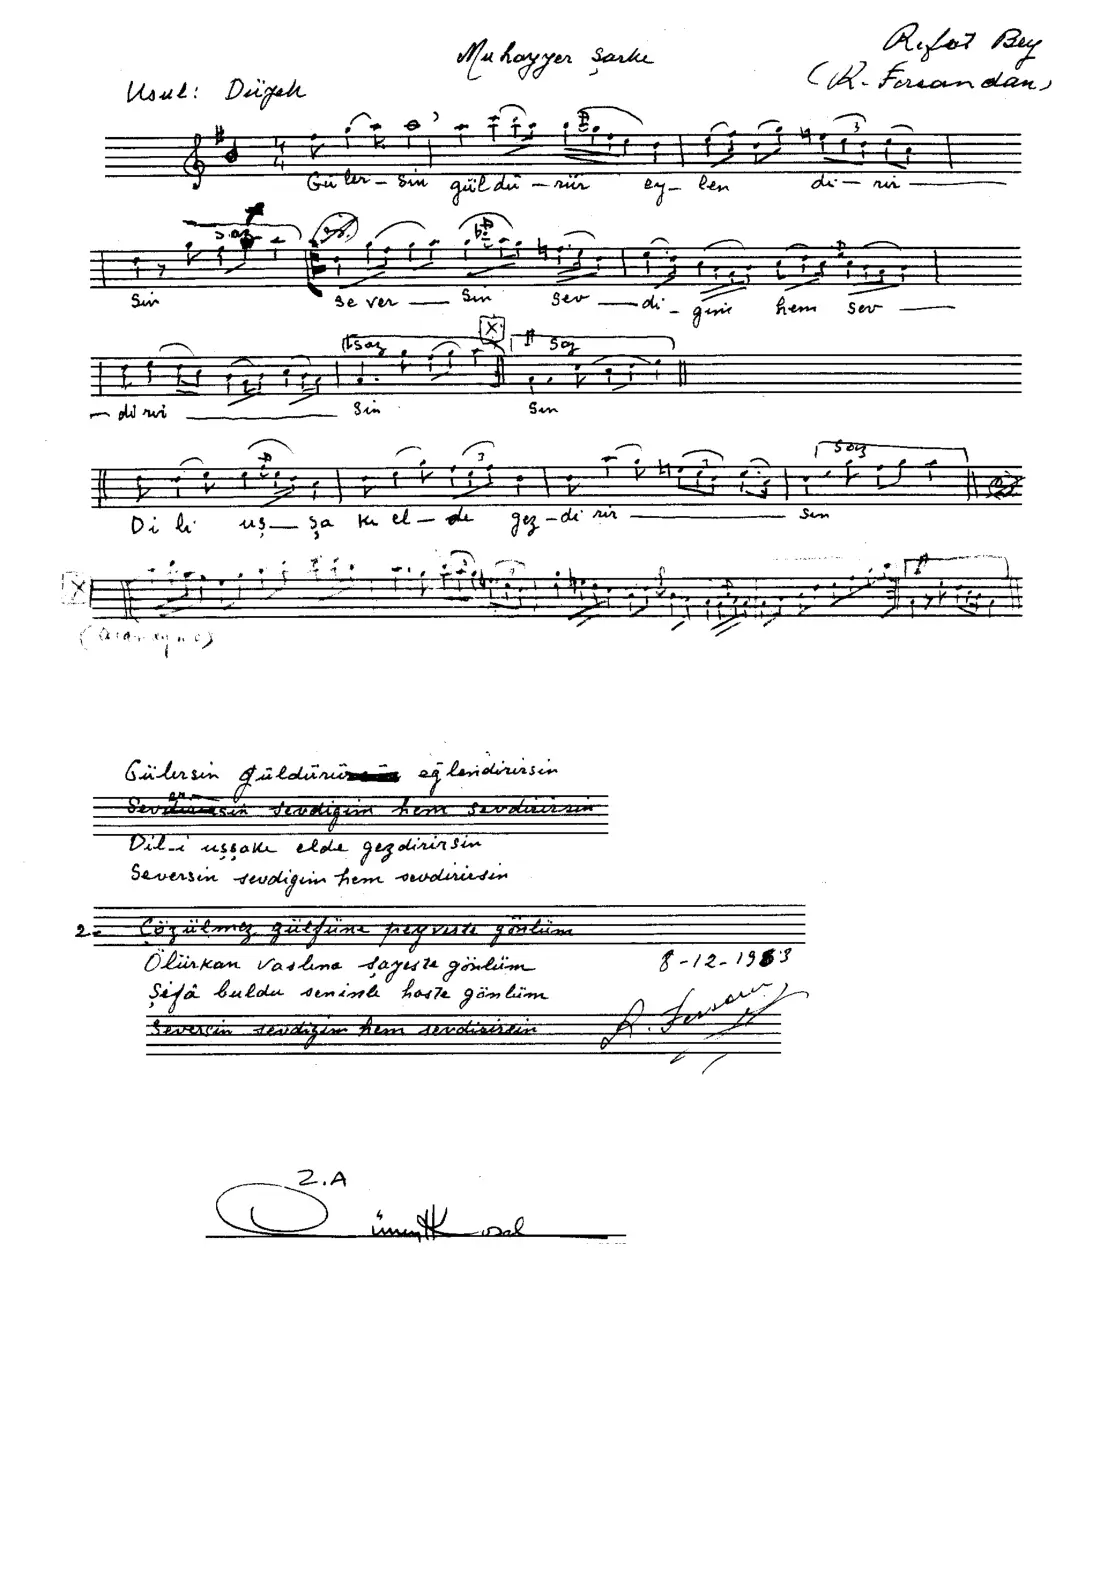 Muhayyer Şarkı
Rifat Bey
(R. Fersandan)
Usul: Düyek
Gü ler - sin gül dü - rür ey - len di - rir
saz
Sin Se ver Sin Sev di - gim hem sev
1 saz X II saz
di rir Sin Sin
saz
Di li uş - şa kı el - de gez - di rir sin
X
(Aranağme)
Gülersin güldürür eğlendirirsin
Seversin sevdigim hem sevdirirsin
Dil-i uşşakı elde gezdirirsin
Seversin sevdigim hem sevdirirsin
2- Çözülmez zülfüne peyveste gönlüm
Ölürkan vaslına şayeste gönlüm
8-12-1983
Şifâ buldu seninle haste gönlüm
Seversin sevdigim hem sevdirirsin
R. Fersan
2.A